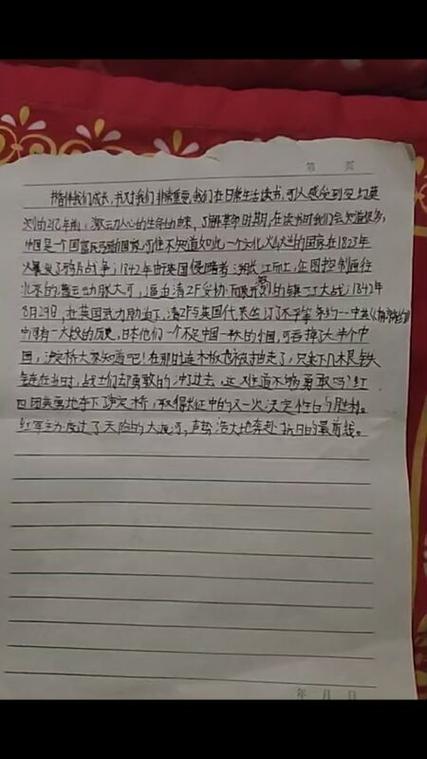 第 页
书陪伴我们成长,书对我们非常重要,我们在日常生活读书,可以感受到
的2亿年前,激动人心的生命的由来,了解革命时期,在读书时我们会知道很多,
中国是一个国富民强的国家,可谁不知道如此一个文化 的国家在1823年
火爆发了鸦片战争;1842年由英国侵略者溯长江而上,企图控制通往
北京的 动脉大河,逼迫清政府妥协而展开的镇江大战;1842年
8月29日,在英国武力胁迫下,清政府与英国代表签订了不平等条约一中英《南京条约》
中国有一大段的历史,日本他们一个不足中国一块的小国,可吞掉了大半个中
国,泸定桥大家知道吧!在那时连木板也被抽走了,只剩下几根铁
链在当时,战士们却勇敢的冲了过去,这难道不够勇敢吗?红
四团英勇地夺下泸定桥,取得长征中的又一次决定性的胜利。
红军主力渡过了天险的大渡河,声势浩大地奔赴抗日的最前线。
年 月 日